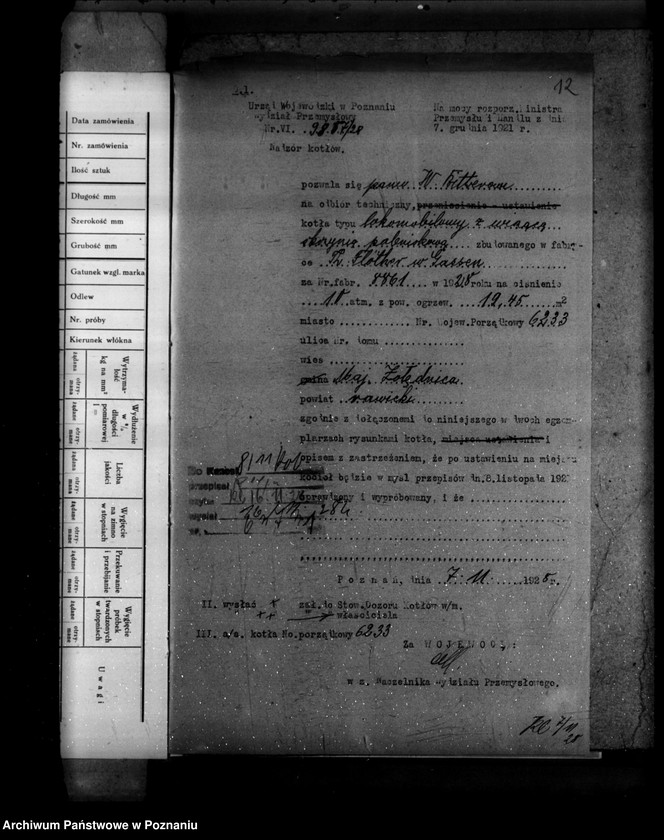 Data zamówienia
Nr. zamówienia
Ilość sztuk
Długość mm
Szerokość mm
Grubość mm
Gatunek wzgl. marka
Odlew
Nr. próby
Kierunek włókna
Wytrzymałość kg na mm²
żądane otrzymane
Wydłużenie w % długości pomiarowej l =
żądane otrzymane
Liczba jakości
żądane otrzymane
Wygięcie na zimno w stopniach
żądane otrzymane
Przekuwanie i przebijanie
żądane otrzymane
Wygięcie próbek twardzonych w stopniach
żądane otrzymane
Uwagi
12
Urząd Wojewódzki w Poznaniu
Wydział Przemysłowy
Nr.VI.
Nadzór kotłów.
Na mocy rozporz. Ministra
Przemysłu i Handlu z dnia
7. grudnia 1921 r.
pozwala się panu W.
na odbiór techniczny, przeniesienie - ustawienie
kotła typu lokomobilowy z wiszącą
skrzynią paleniskową zbudowanego w fabry-
ce Th. Flöther w Gassen
za Nr.fabr. 8861 w 1928 roku na ciśnienie
10 atm. z pow. ogrzew. 12,45 m²
miasto Nr. Wojew.Porządkowy 6233
ulica Nr. domu
wieś
gmina Maj. Żołędnica
powiat rawicki
zgodnie z dołączonemi do niniejszego w dwóch egzem-
plarzach rysunkami kotła, miejsca ustawienia i
opisem z zastrzeżeniem, że po ustawieniu na miejscu
kocioł będzie w myśl przepisów dn.8.listopada 192
sprawdzony i wypróbowany, i że
Poznań, dnia 7.11. 1928 r.
II. wysłać zał. do Stow. Dozoru Kotłów w/m.
właściciela
III. a/a. kotła No.porządkowy 6233
Za WOJEWODĘ:
w z. Naczelnika Wydziału Przemysłowego.
Archiwum Państwowe w Poznaniu